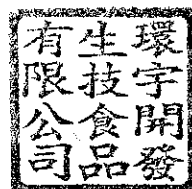 環宇開發
生技食品
有限公司